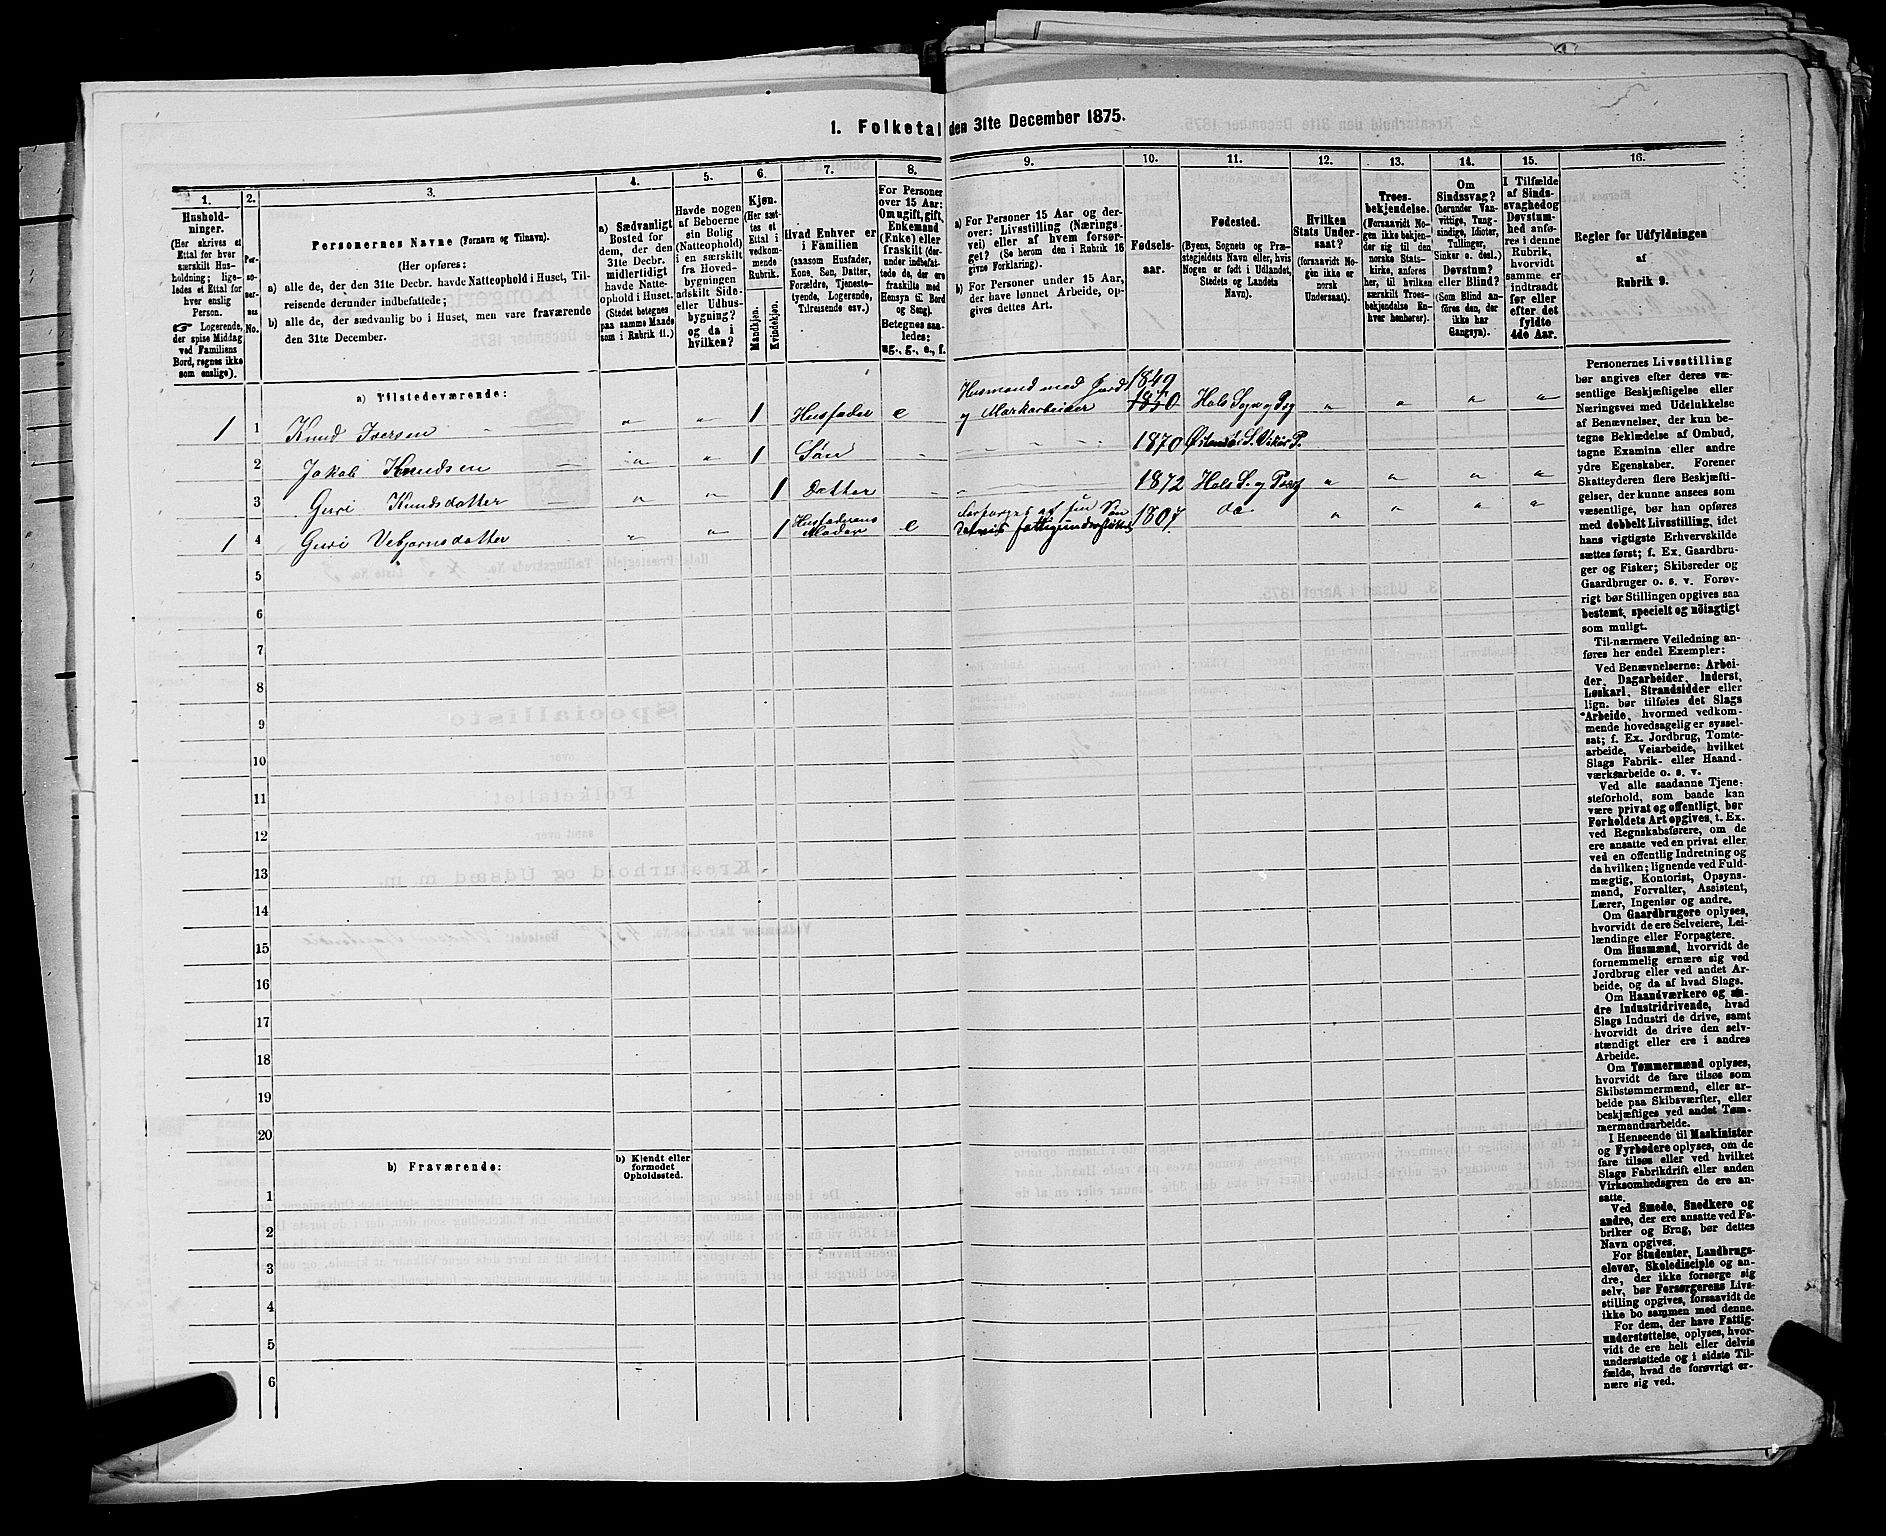 1. Folketal den 31te December 1875.
1. 2. 3. 4. 5. 6. 7. 8. 9. 10. 11. 12. 13. 14. 15. 16.
Hushold-
ninger.
(Her skrives et
Ettal for hver
særskilt Hus-
holdning; lige-
ledes et Ettal for
hver enslig
Person.
☞ Logerende,
der spise Middag
ved Familiens
Bord, regnes ikke
som enslige).
Per-
so-
ner-
nes
No.
Personernes Navne (Fornavn og Tilnavn).
(Her opføres:
a) alle de, der den 31te Decbr. havde Natteophold i Huset, Til-
reisende derunder indbefattede;
b) alle de, der sædvanlig bo i Huset, men vare fraværende
den 31te December.
a) Sædvanligt
Bosted for
dem, der den
31te Decbr.
midlertidigt
havde Natte-
ophold i Huset.
(Stedet betegnes
paa samme Maade
som i Rubrik 11.)
Havde nogen
af Beboerne
sin Bolig
(Natteophold)
i en særskilt
fra Hoved-
bygningen
adskilt Side-
eller Udhus-
bygning?
og da i
hvilken?
Kjøn.
(Her sæt-
tes et
Ettal i
vedkom-
mende
Rubrik.
Mandkjøn.
Kvindekjøn.
Hvad Enhver er
i Familien
(saasom Husfader,
Kone, Søn, Datter,
Forældre, Tjeneste-
tyende, Logerende,
Tilreisende osv.)
For Personer
over 15 Aar:
Om ugift, gift,
Enkemand
(Enke) eller
fraskilt (der-
under indbefat-
tede de, der ere
fraskilte med
Hensyn til Bord
og Seng).
Betegnes saa-
ledes:
ug., g., e., f.
a) For Personer 15 Aar og der-
over: Livsstilling (Nærings-
vei) eller af hvem forsør-
get? (Se herom den i Rubrik 16
givne Forklaring).
b) For Personer under 15 Aar,
der have lønnet Arbeide, op-
gives dettes Art.
Fødsels-
aar.
Fødested.
(Byens, Sognets og Præ-
stegjeldets Navn eller, hvis
Nogen er født i Udlandet,
Stedets og Landets
Navn).
Hvilken
Stats Under-
saat?
(forsaavidt No-
gen ikke er
norsk
Undersaat).
Troes-
bekjendelse.
(Forsaavidt No-
gen ikke bekjen-
der sig til den
norske Stats-
kirke, anføres
her, til hvilken
særskilt Troes-
bekjendelse En-
hver henhører).
Om
Sindssvag?
(herunder Van-
vittige, Tung-
sindige, Idioter,
Tullinger,
Sinker o. desl.)
Døvstum?
eller Blind?
(Som Blind an-
føres den, der
ikke har
Gangsyn).
I Tilfælde
af Sinds-
svaghed og
Døvstum-
hed anfø-
res i denne
Rubrik,
hvorvidt
samme er
indtraadt
før eller
efter det
fyldte
4de Aar.
Regler for Udfyldningen
af
Rubrik 9.
a) Tilstedeværende:
1 1 Knud Iversen " " 1 Husfader e Husmand med Jord og Markarbeider 1849 1850 Hols Sogn og Pgj " " " "
2 Jakob Knudsen " " 1 Søn 1870
3 Guri Knudsdatter " " 1 Datter 1872 Hols S. og Præstgj " " " "
1 4 Guri Vebjørnsdatter " " 1 Husfaderens Moder e forsørget af sin Søn delvis fattigunderstøttet 1807 do " " " "
5
6
7
8
9
10
11
12
13
14
15
16
17
18
19
20
b) Fraværende:
b) Kjendt eller
formodet
Opholdssted.
1
2
3
4
5
6
Personernes Livsstilling
bør angives efter deres væ-
sentlige Beskjæftigelse eller
Næringsvei med Udelukkelse
af Benævnelser, der kun be-
tegne Beklædelse af Ombud,
tagne Examina eller andre
ydre Egenskaber. Forener
Skatteyderen flere Beskjæfti-
gelser, der kunne ansees som
væsentlige, bør han opføres
med dobbelt Livsstilling, idet
hans vigtigste Erhvervskilde
sættes først; f. Ex. Gaardbru-
ger og Fisker; Skibsreder og
Gaardbruger o. s. v. Forøv-
rigt bør Stillingen opgives saa
bestemt, specielt og nöiagtigt
som muligt.
Til nærmere Veiledning an-
føres her endel Exempler:
Ved Benævnelserne: Arbei-
der, Dagarbeider, Inderst,
Løskarl, Strandsidder eller
lign. bør tilføies det Slags
Arbeide, hvormed vedkom-
mende hovedsagelig er syssel-
sat; f. Ex. Jordbrug, Tomte-
arbeide, Veiarbeide, hvilket
Slags Fabrik- eller Haand-
værksarbeide o. s. v.
Ved alle saadanne Tjene-
steforhold, som baade kan
være privat og offentligt, bør
Forholdets Art opgives, t. Ex.
ved Regnskabsførere, om de
ere ansatte ved en privat eller
ved en offentlig Indretning og
da hvilken; lignende ved Fuld-
mægtig, Kontorist, Opsyns-
mand, Forvalter, Assistent,
Lærer, Ingeniør og andre.
Om Gaardbrugere oplyses,
hvorvidt de ere Selveiere, Lei-
lændinge eller Forpagtere.
Om Husmænd, hvorvidt de
fornemmelig ernære sig ved
Jordbrug eller ved andet Ar-
beide, og da af hvad Slags.
Om Haandværkere og an-
dre Industridrivende, hvad
Slags Industri de drive, samt
hvorvidt de drive den selv-
stændigt eller ere i andres
Arbeide.
Om Tømmermænd oplyses,
hvorvidt de fare tilsøs som
Skibstømmermænd, eller ar-
beide paa Skibsværfter, eller
beskjæftiges ved andet Tøm-
mermandsarbeide.
I Henseende til Maskinister
og Fyrbødere oplyses, om de
fare tilsøs eller ved hvilket
Slags Fabrikdrift eller anden
Virksomhedsgren de ere an-
satte.
Ved Smede, Snedkere og
andre, der ere ansatte ved Fa-
briker og Brug, bør dettes
Navn opgives.
For Studenter, Landbrugs-
elever, Skoledisciple og an-
dre, der ikke forsørge sig
selv, bør Forsørgerens Livs-
stilling opgives, forsaavidt de
ikke bo sammen med denne.
For dem, der have Fattig-
understøttelse, oplyses, hvor-
vidt de ere helt eller delvis
understøttede og i sidste Til-
fælde, hvad de forøvrigt er-
nære sig ved.